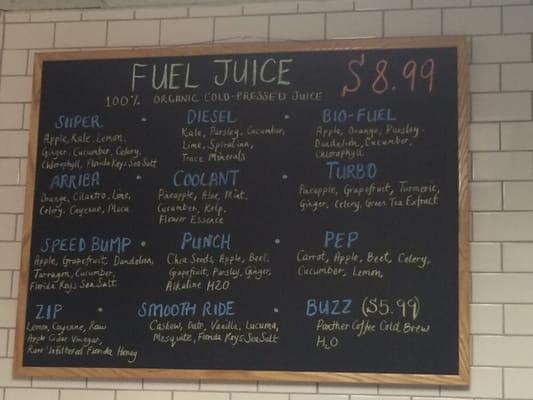 FUEL JUICE $8.99
100% ORGANIC COLD-PRESSED JUICE
SUPER
Apple, Kale, Lemon,
Ginger, Cucumber, Celery,
Chlorophyll, Florida Keys Sea Salt
DIESEL
Kale, Parsley, Cucumber,
Lime, Spirulina,
Trace Minerals
BIO-FUEL
Apple, Orange, Parsley,
Dandelion, Cucumber,
Chlorophyll
ARRIBA
Orange, Cilantro, Lime,
Celery, Cayenne, Maca
COOLANT
Pineapple, Aloe, Mint,
Cucumber, Kelp,
Flower Essence
TURBO
Pineapple, Grapefruit, Turmeric,
Ginger, Celery, Green Tea Extract
SPEED BUMP
Apple, Grapefruit, Dandelion,
Tarragon, Cucumber,
Florida Keys Sea Salt
PUNCH
Chia Seeds, Apple, Beet,
Grapefruit, Parsley, Ginger,
Alkaline H2O
PEP
Carrot, Apple, Beet, Celery,
Cucumber, Lemon,
ZIP
Lemon, Cayenne, Raw
Apple Cider Vinegar,
Raw Unfiltered Florida Honey
SMOOTH RIDE
Cashew, Date, Vanilla, Lucuma,
Mesquite, Florida Keys Sea Salt
BUZZ ($5.99)
Panther Coffee Cold Brew
H2O